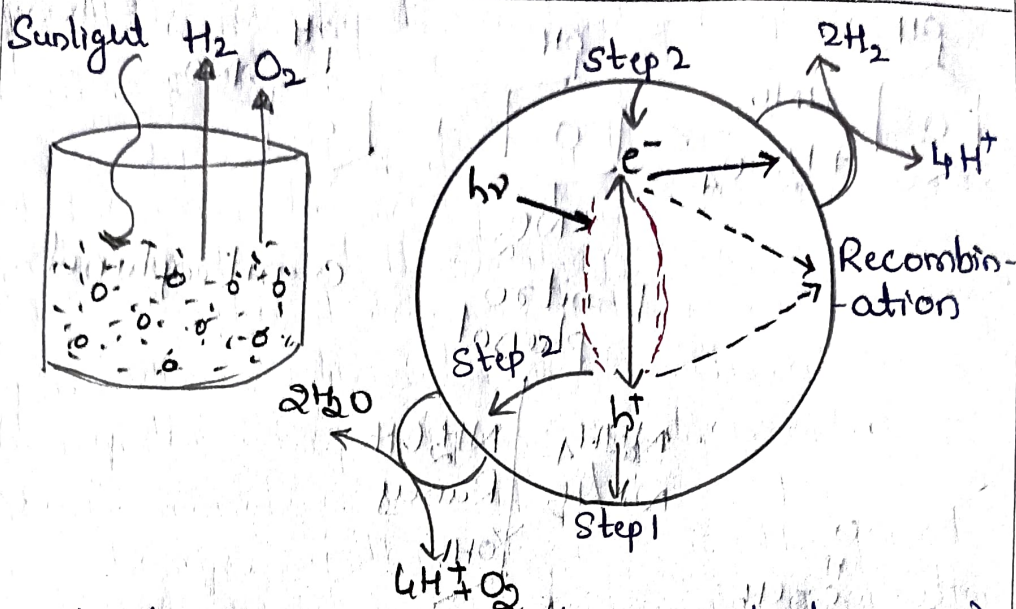 Sunlight
H2
O2
Step 2
2H2
e-
4H+
hν
Recombin-
-ation
Step 2
2H2O
h+
Step 1
4H+ + O2